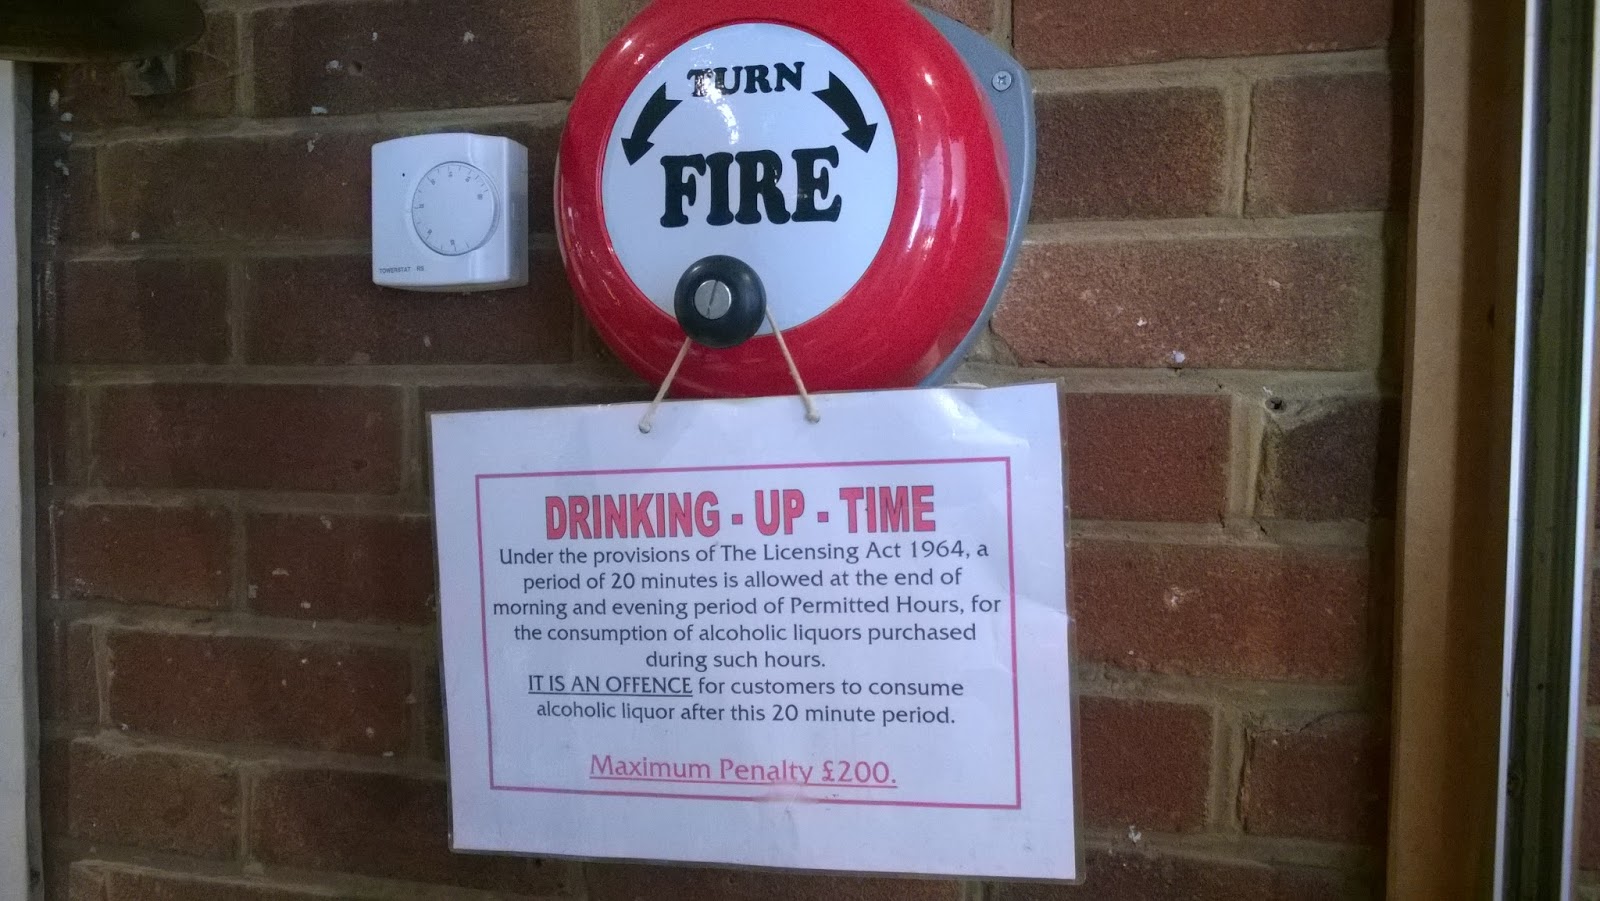 TURN
FIRE
TOWERSTAT RS
DRINKING - UP - TIME
Under the provisions of The Licensing Act 1964, a
period of 20 minutes is allowed at the end of
morning and evening period of Permitted Hours, for
the consumption of alcoholic liquors purchased
during such hours.
IT IS AN OFFENCE for customers to consume
alcoholic liquor after this 20 minute period.
Maximum Penalty £200.